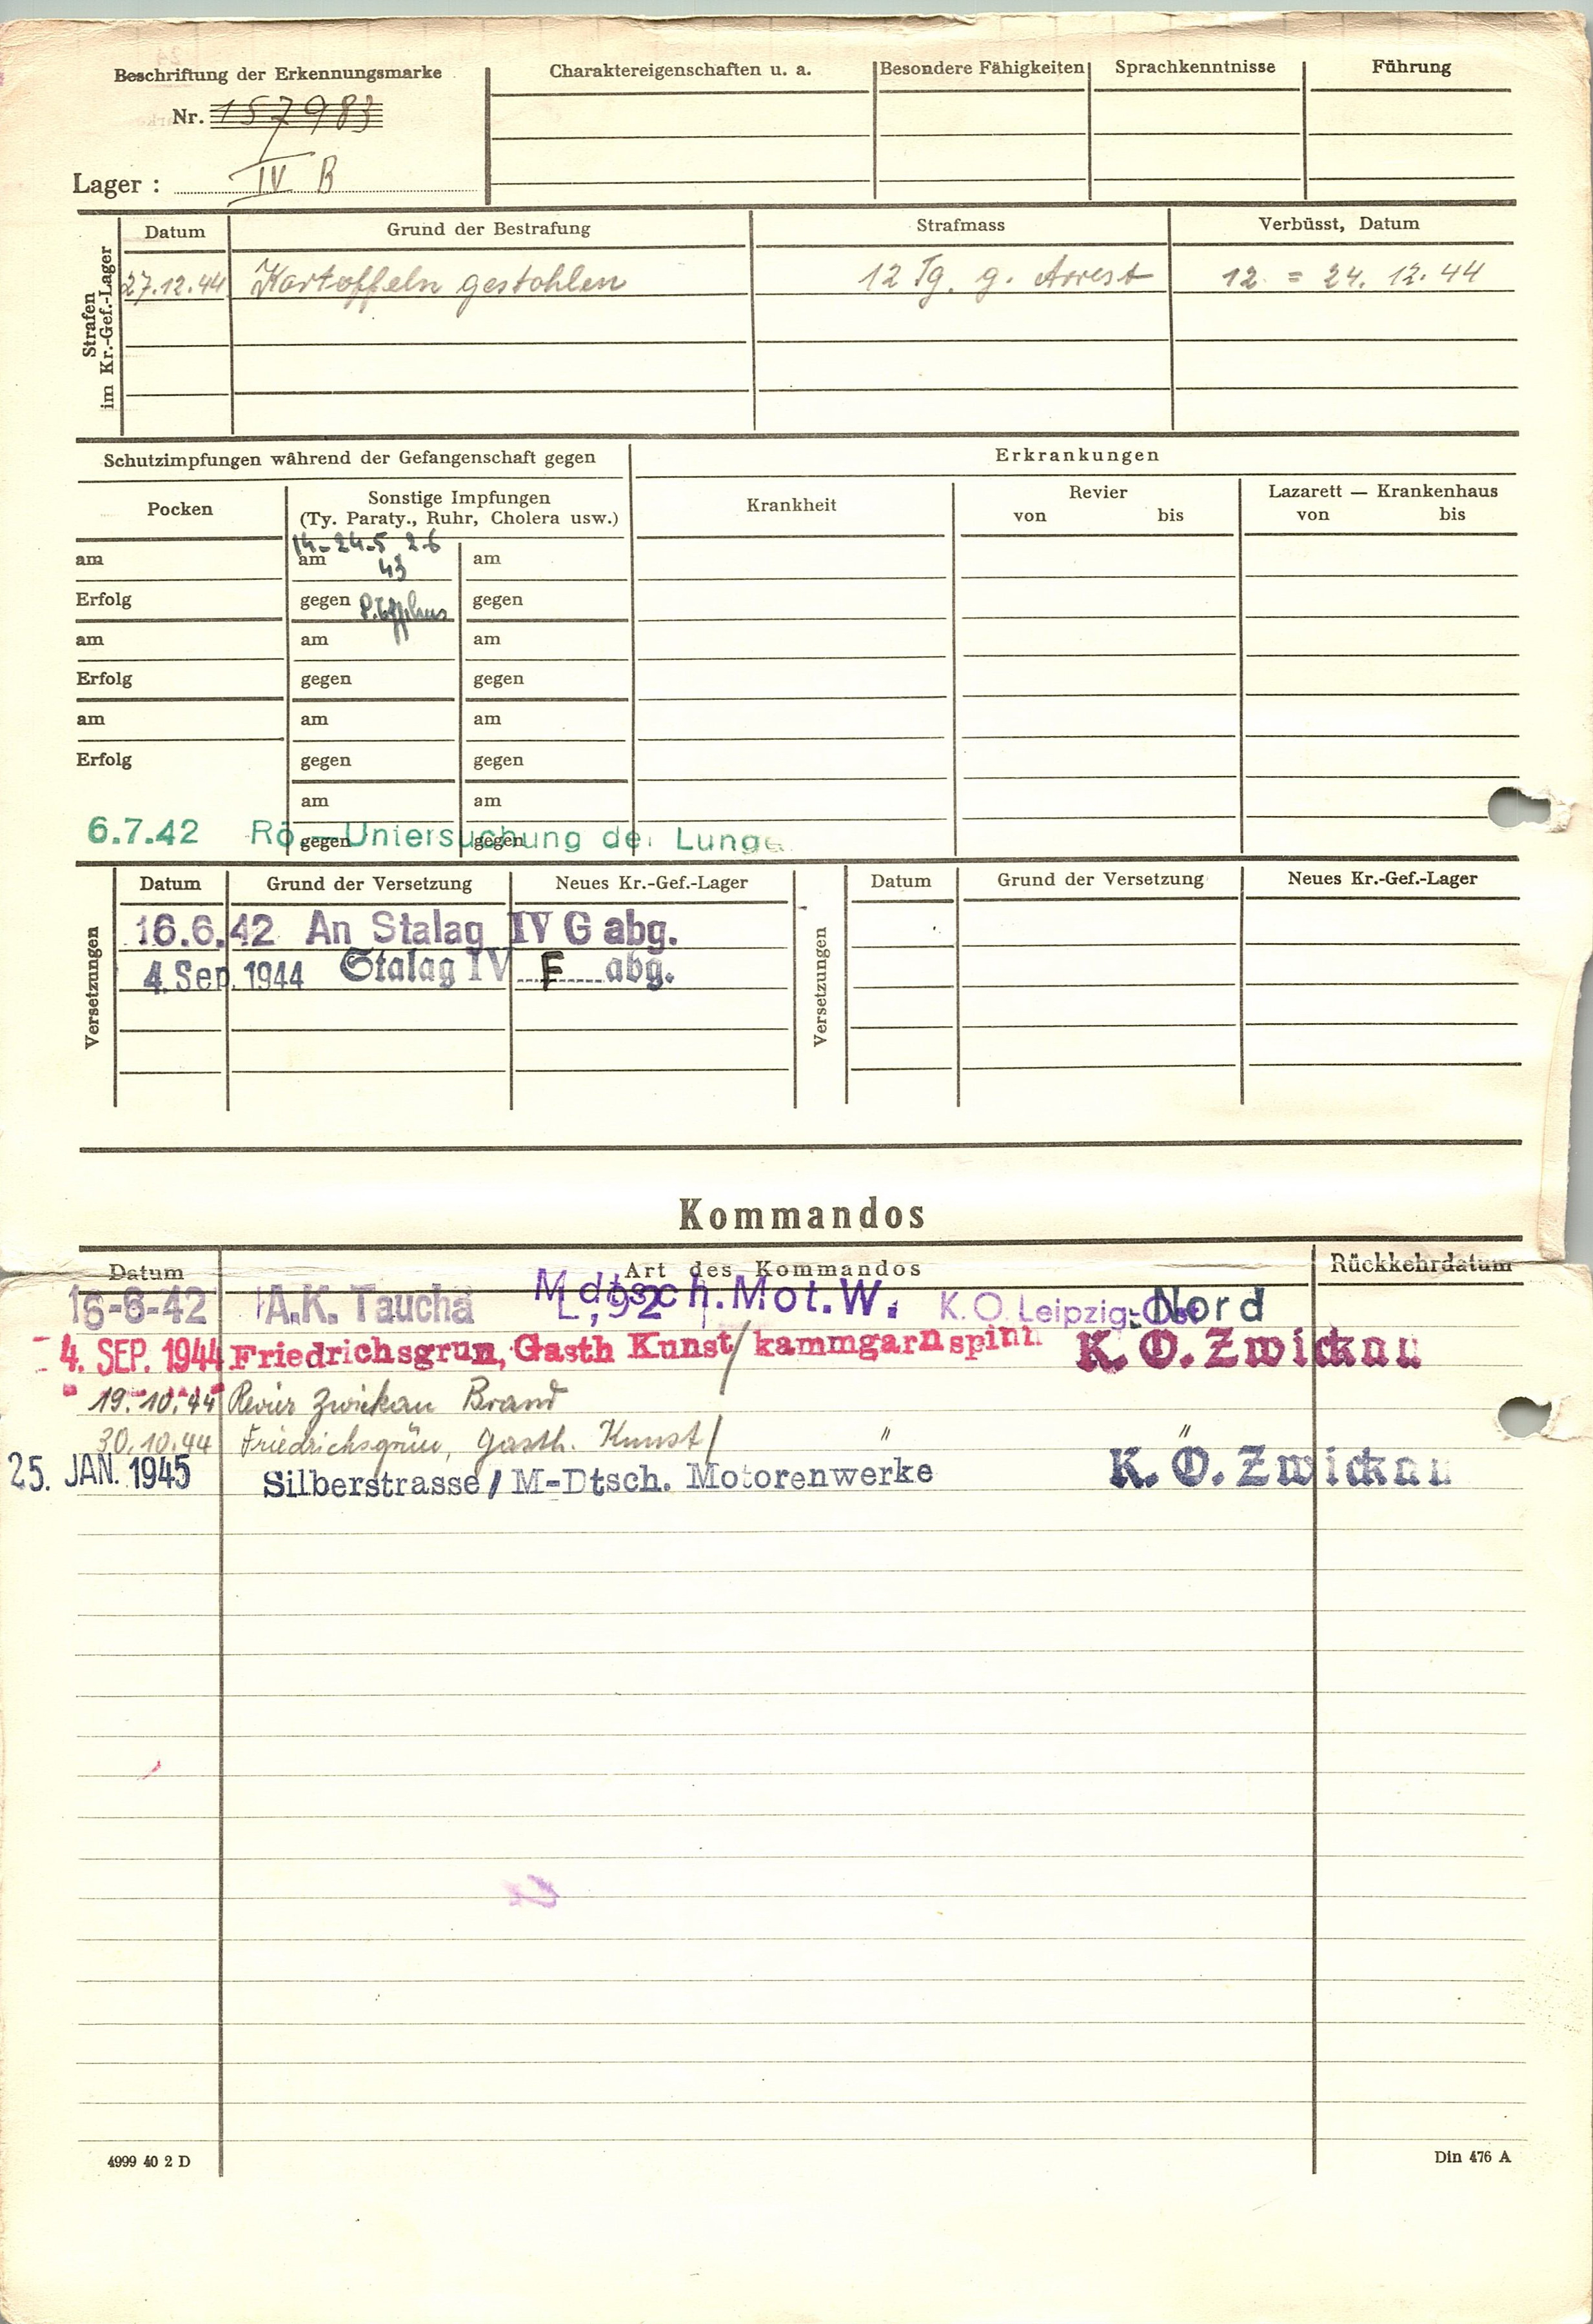 Beschriftung der Erkennungsmarke
Nr. 157983
Lager : IV B
Charaktereigenschaften u. a.
Besondere Fähigkeiten
Sprachkenntnisse
Führung
Strafen im Kr.-Gef.-Lager
Datum Grund der Bestrafung Strafmass Verbüsst, Datum
27.12.44 Kartoffeln gestohlen 12 Tg. g. Arrest 12. = 24. 12. 44
Schutzimpfungen während der Gefangenschaft gegen
Erkrankungen
Pocken
Sonstige Impfungen
(Ty. Paraty., Ruhr, Cholera usw.)
Krankheit
Revier
von bis
Lazarett — Krankenhaus
von bis
14.-24.5 2.6
am am 43 am
Erfolg gegen gegen
am am am
Erfolg gegen gegen
am am am
Erfolg gegen gegen
am am
gegen gegen
6.7.42 Rö-Untersuchung der Lunge
Versetzungen
Datum Grund der Versetzung Neues Kr.-Gef.-Lager
16.6.42 An Stalag IV G abg.
4. Sep. 1944 Stalag IV F abg.
Versetzungen
Datum Grund der Versetzung Neues Kr.-Gef.-Lager
Kommandos
Datum Art des Kommandos Rückkehrdatum
16-6-42 A.K. Taucha Mdtsch.Mot.W. K.O. Leipzig-Nord
4. SEP. 1944 Friedrichsgrün, Gasth Kunst/kammgarnspinn K. O. Zwickau
19.10.44 Revier Zwickau Brand
30.10.44 Friedrichsgrün, Gasth. Kunst/ " "
25. JAN. 1945 Silberstrasse/M-Dtsch. Motorenwerke K. O. Zwickau
4999 40 2 D
Din 476 A